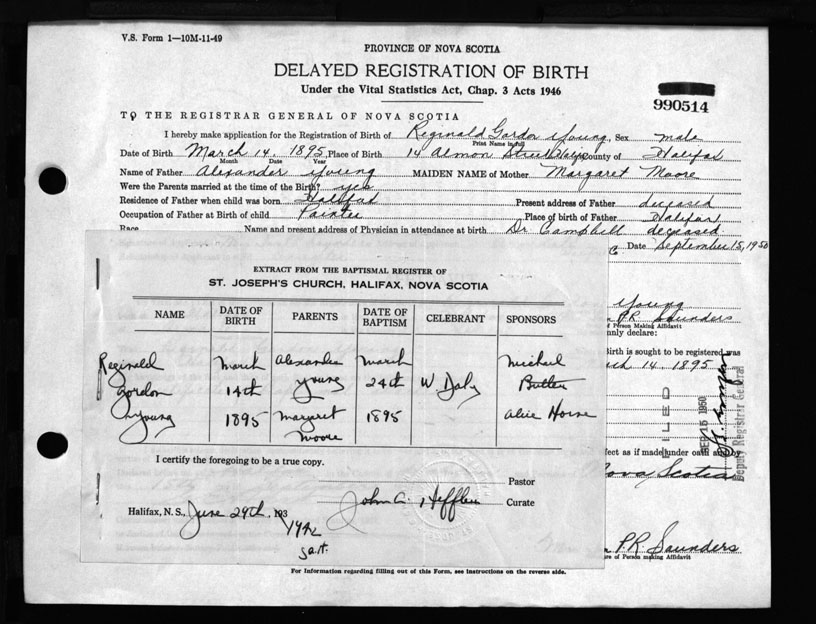 V.S. Form 1—10M-11-49
PROVINCE OF NOVA SCOTIA
DELAYED REGISTRATION OF BIRTH
Under the Vital Statistics Act, Chap. 3 Acts 1946
990514
TO THE REGISTRAR GENERAL OF NOVA SCOTIA
I hereby make application for the Registration of Birth of Reginald Gordon Young, Sex male
Print Name in full
Date of Birth March 14, 1895, Place of Birth 14 Almon Street County of Halifax
Month Date Year
Name of Father Alexander Young MAIDEN NAME of Mother Margaret Moore
Were the Parents married at the time of the Birth? yes
Residence of Father when child was born Halifax Present address of Father deceased
Occupation of Father at Birth of child Painter Place of birth of Father Halifax
Race Name and present address of Physician in attendance at birth Dr. Campbell deceased
Date September 15, 1950
EXTRACT FROM THE BAPTISMAL REGISTER OF
ST. JOSEPH'S CHURCH, HALIFAX, NOVA SCOTIA
NAME DATE OF BIRTH PARENTS DATE OF BAPTISM CELEBRANT SPONSORS
Reginald March Alexander March Michael
Gordon 14th Young 24th W. Daly Butler
Young 1895 Margaret 1895 Alice Horne
Moore
I certify the foregoing to be a true copy.
Pastor
John A. Curate
Halifax, N. S., June 29th, 193
1942
Young
PR Saunders
of Person Making Affidavit
nly declare:
Birth is sought to be registered was
rch 14, 1895
FILED
SEP 15 1950
Deputy Registrar General
fect as if made under oath
Nova Scotia
PR Saunders
re of Person making Affidavit
For Information regarding filling out of this Form, see Instructions on the reverse side.